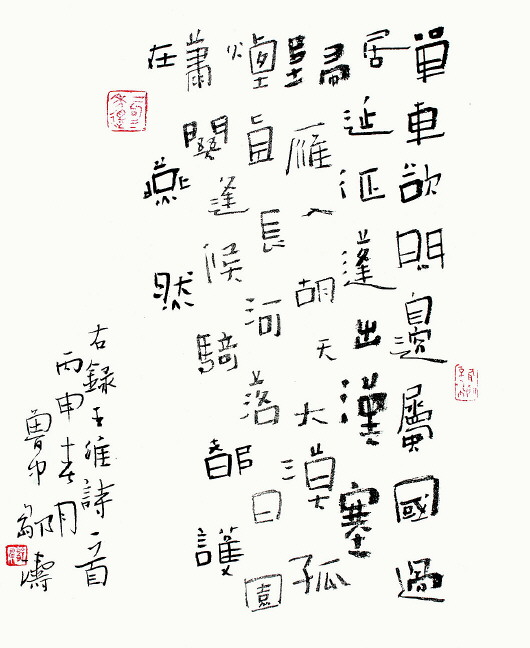 單車欲問邊屬國過
居延征蓬出漢塞
歸雁入胡天大漠孤
煙直長河落日圓
蕭關逢候騎都護
在燕然
右錄王維詩一首
丙申春月
魯中鄒濤